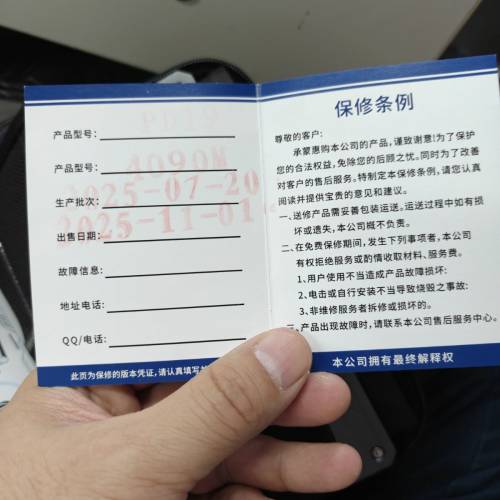 产品型号：
P019
产品型号：
4090M
生产批次：
2025-07-20
2025-11-01
出售日期：
故障信息：
地址电话：
QQ/电话：
此页为保修的版本凭证，请认真填写
保修条例
尊敬的客户：
承蒙惠购本公司的产品，谨致谢意！为了保护
您的合法权益，免除您的后顾之忧。同时为了改善
对客户的售后服务。特制定本保修条例，请您认真
阅读并提供宝贵的意见和建议。
一、送修产品需妥善包装运送。运送过程中如有损
坏或遗失，本公司概不负责。
二、在免费保修期间，发生下列事项者，本公司
有权拒绝服务或酌情收取材料、服务费。
1、用户使用不当造成产品故障损坏：
2、电击或自行安装不当导致烧毁之事故：
3、非维修服务者拆修或损坏的。
三、产品出现故障时，请联系本公司售后服务中心。
本公司拥有最终解释权